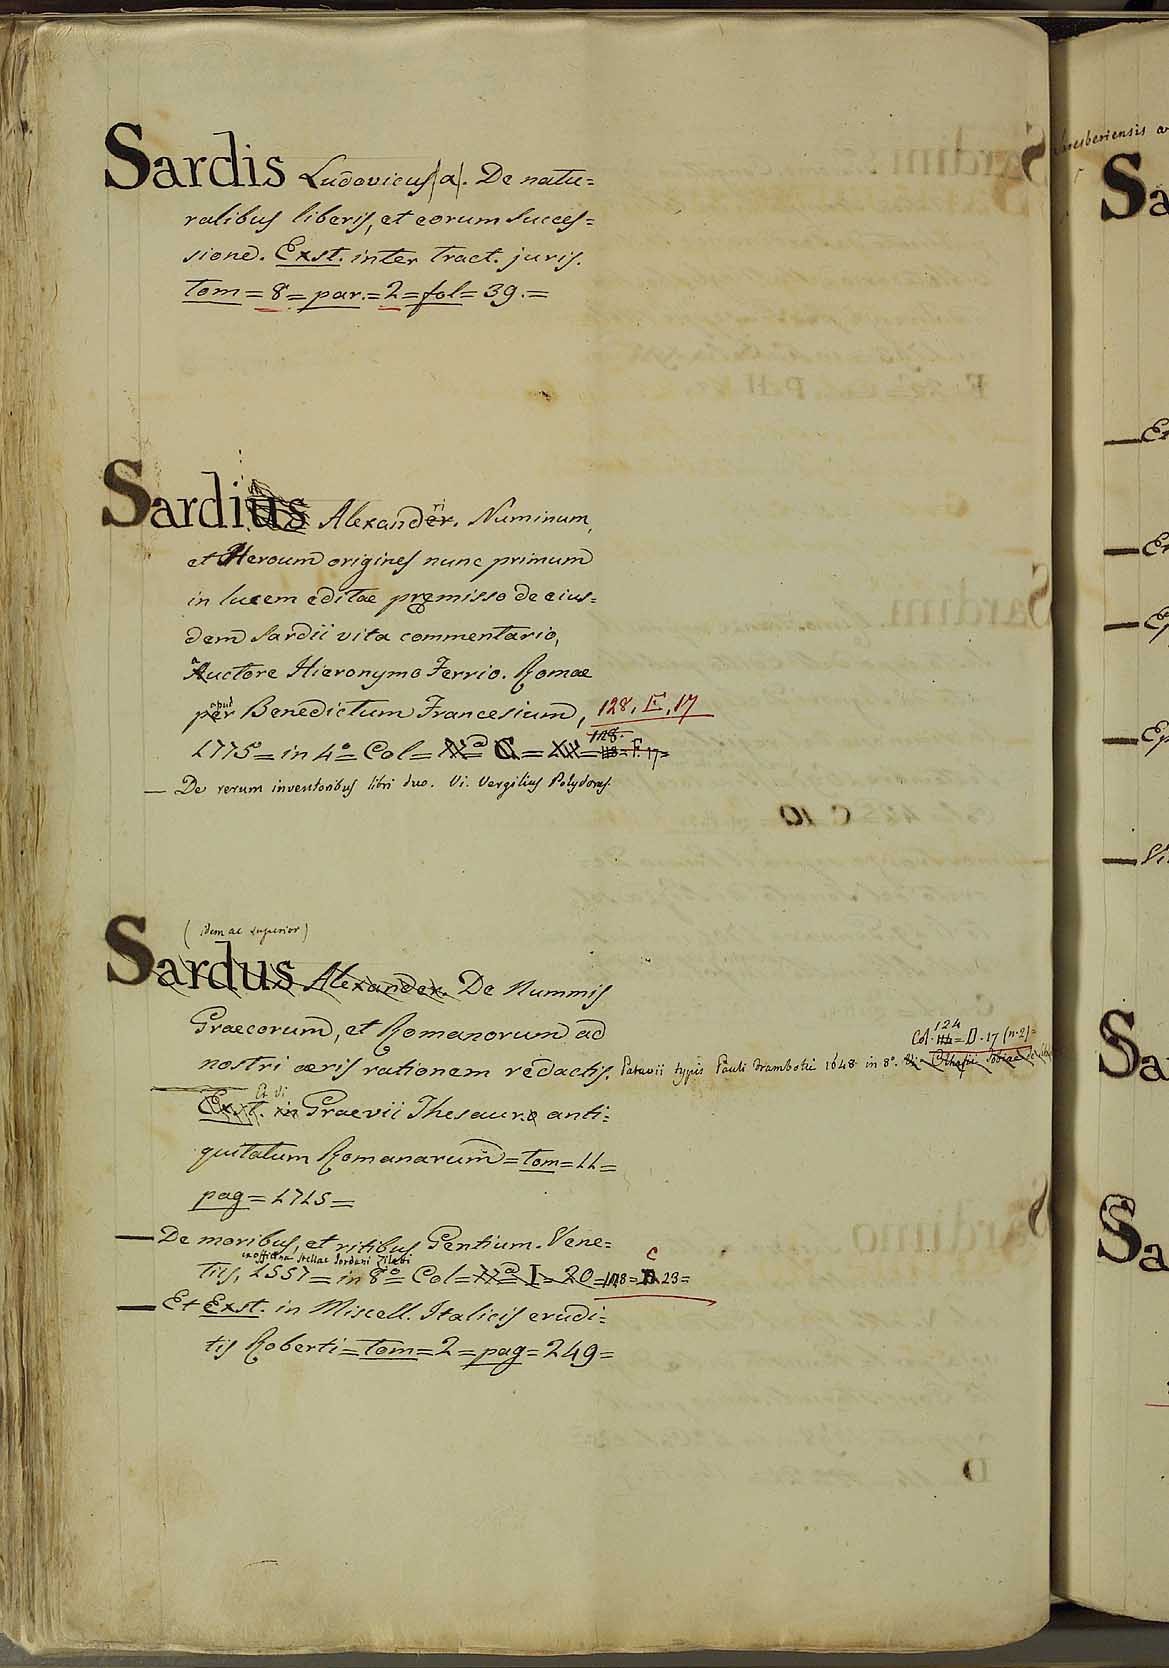 Sardis Ludovicus (a). De natu=
ralibus liberis, et eorum succes=
sione. Exst. inter tract. juris.
tom = 8 = par. = 2 = fol = 39. =
Sardi Alexandri. Numinum,
et Heroum origines nunc primum
in lucem editae premisso de eius=
dem Sardii vita commentario,
auctore Hieronymo Ferrio. Romae
apud Benedictum Francesium, 128. E. 17
1775 = in 4° = Col =
— De rerum inventoribus libri duo. Vi. Vergilius Polydorus.
(idem ac superior)
Sardus Alexander. De Nummis
Graecorum, et Romanorum ad
nostri aeris rationem redactis. Patavii typis Pauli Frambotti 1648 in 8°.
Col. 124 = D. 17 (n. 2) =
Et Vi Graevii Thesauro anti=
quitatum Romanarum = tom = 11 =
pag = 1715 =
— De moribus, et ritibus Gentium. Vene=
ex officina Stellae Jordani Zileti
tiis, 1557 = in 8° = Col = 118 = C 23 =
— Et Exst. in Miscell. Italicis erudi=
tis Roberti = tom = 2 = pag = 249 =
Sa
Sa
Sa